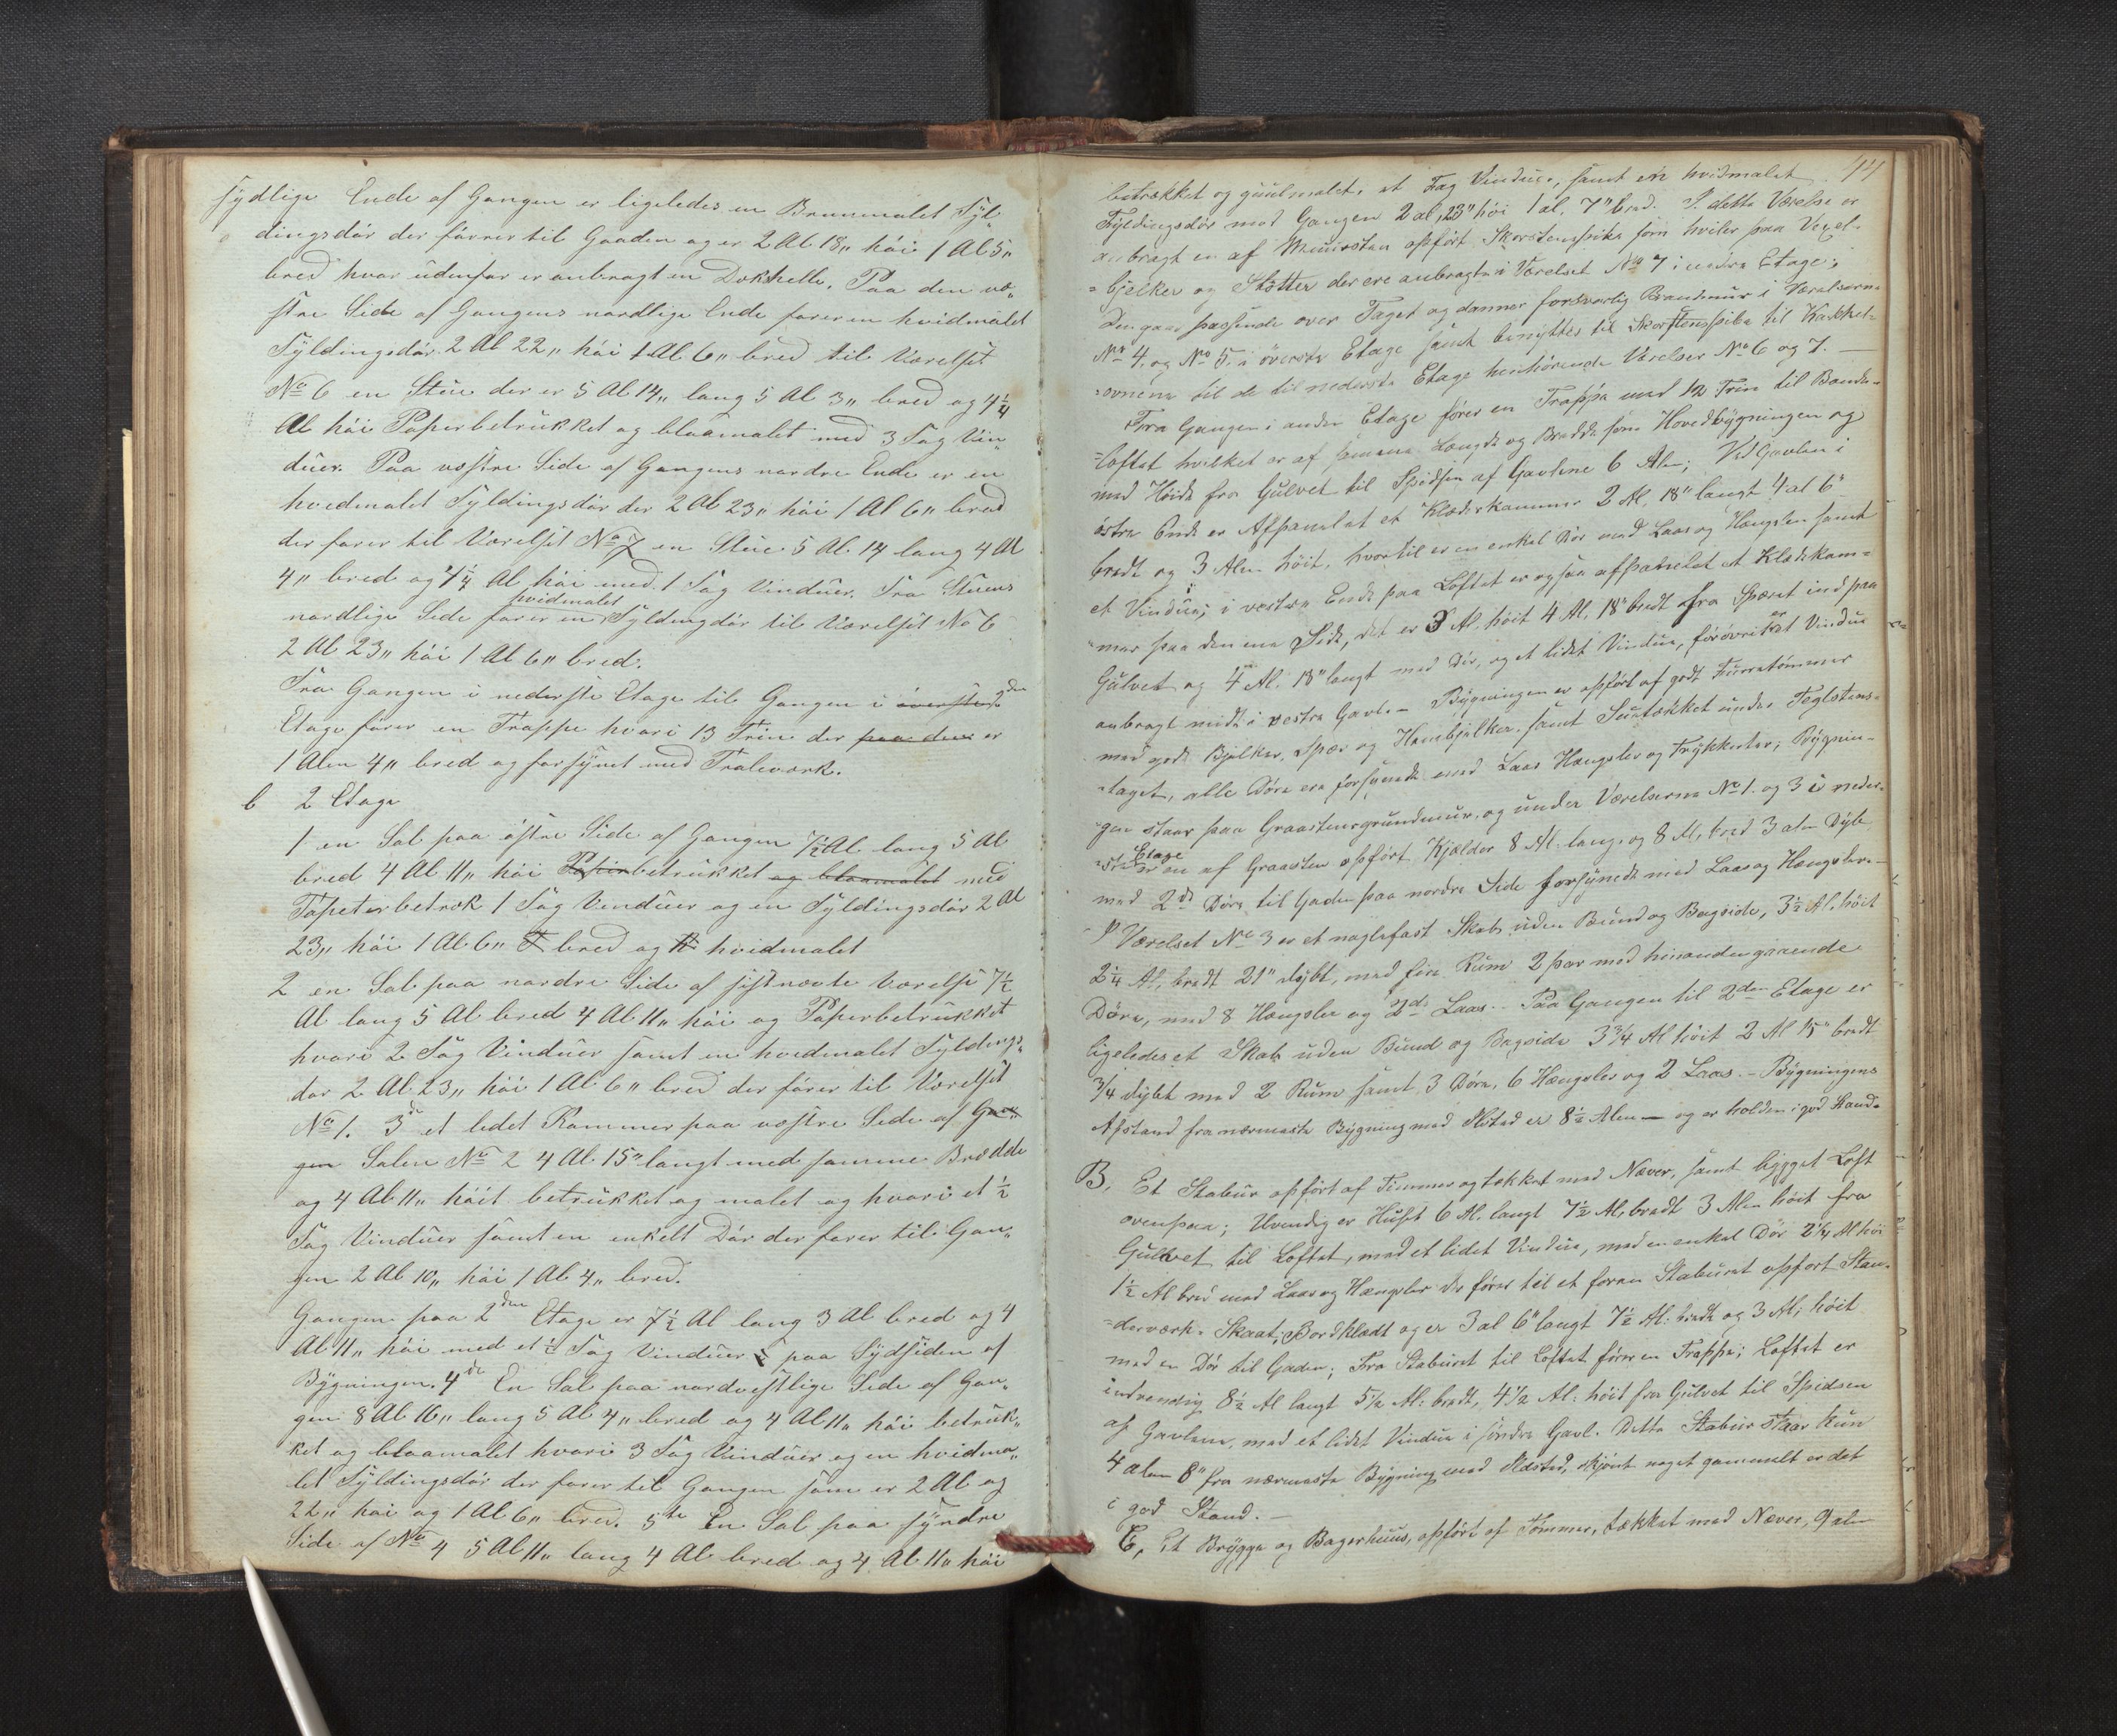 sydlige Ende af Gangen er ligeledes en Brunmalet Fyl„
dingsdör der förer til Gaarden og er 2 Al 18„ höi 1 Al 5„
bred hvor udenfor er anbragt en Dokhelle. Paa den ve„
stre Side af Gangens nordlige Ende forer en hvidmalet
Fyldingsdör 2 Al 22„ höi 1 Al 6„ bred til Værelset
No 6 en Stue der er 5 Al 14„ lang 5 Al 3„ bred og 4 1/4
Al höi Papirbetrukket og blaamalet med 3 Fag Vin„
duer. Paa vestre Side af Gangens nordre Ende er en
hvidmalet Fyldingsdör der 2 Al 23„ höi 1 Al 6„ bred
der forer til Værelset No 7 en Stue 5 Al 14 lang 4 Al
4„ bred og 4 1/4 Al höi med 1 Fag Vinduer. Fra Stuens
nordlige Side forer en hvidmalet Fyldingdör til Værelset No 6
2 Al 23„ höi 1 Al 6„ bred.
Fra Gangen i nederste Etage til Gangen i överste 2den
Etage förer en Trappe hvori 13 Trin der paa den er
1 Alen 4„ bred og forsynet med Traleværk.
b 2 Etage
1 en Sal paa östre Side af Gangen 7 1/2 Al lang 5 Al
bred 4 Al 11„ höi Papirbetrukket og blaamalet med
Tapetbetræk 1 Fag Vinduer og en Fyldingsdör 2 Al
23„ höi 1 Al 6„ bred og hvidmalet
2 en Sal paa nordre Side af sistnævte Værelse 7 1/2
Al lang 5 Al bred 4 Al 11„ höi og Papirbetrukket
hvori 2 Fag Vinduer samt en hvidmalet Fyldings„
dör 2 Al 23„ höi 1 Al 6„ bred der förer til Værelset
No 1. 3de et lidet Kammer paa vestre Side af Gan„
gen Salen No 2 4 Al 15„ langt med samme Bredde
og 4 Al 11„ höit betrukket og malet og hvori et 1/2
Fag Vinduer samt en enkelt Dör der forer til Gan„
gen 2 Al 10„ höi 1 Al 4„ bred.
Gangen paa 2den Etage er 7 1/2 Al lang 3 Al bred og 4
Al 11„ höi med et 1/2 Fag Vinduer paa Sydsiden af
Bygningen. 4de En Sal paa nordvestlige Side af Gan„
gen 8 Al 16„ lang 5 Al 4„ bred og 4 Al 11„ höi betruk„
ket og blaamalet hvori 3 Fag Vinduer og en hvidma„
let Fyldingsdör der forer til Gangen som er 2 Al og
22„ höi og 1 Al 6„ bred. 5te En Sal paa syndre
Side af No 4 5 Al 11„ lang 4 Al bred og 4 Al 11„ höi
44
betrækket og guulmalet, et Fag Vinduer, samt en hvidmalet
Fyldingsdør mod Gangen 2 al, 23" høi 1 al, 7" bred. I dette Værelse er
anbragt en af Muursten opført Skorstenspibe som hviler paa Vexel-
=bjelker og Støtter der ere anbragte i Værelset No 7 i nedre Etage;
Den gaar passende over Taget og danner forsvarlig Brandmur i Værelserne
No 4. og No 5. i överste Etage samt benyttes til Skorstenspibe til Kakkel-
=ovnene til de til nederste Etage henhørende Værelser No 6 og 7. —
Fra Gangen i anden Etage fører en Trappe med 12 Trin til Bonde-
=loftet hvilket er af samme Længde og Bredde som Hovedbygningen og
med Høide fra Gulvet til Spidsen af Gavlene 6 Alen; Ved Gavlen i
østre Ende er Afpanelet et Klæderkammer 2 Al, 18" langt 4 al 6"
bredt og 3 Alen høit, hvortil er en enkel Dør med Laas og Hængsler samt
et Vindue; i vestre Ende paa Loftet er ogsaa afpanelet et Klædekam=
=mer paa den ene Side, det er 3 Al, høit 4 Al, 18" bredt fra Spæret ind paa
Gulvet og 4 Al. 18" langt med Dør, og et lidet Vindue, forövrit er et Vindue
anbragt midt i vestre Gavl. – Bygningen er opført af godt Furretømmer
med gode Bjelker, Spær og Hanebjelker, samt Suutækket under Teglstens-
=taget, alle Døre ere forsynede med Laas Hængsler og Trykkerter; Bygnin-
gen staar paa Graastensgrundmuur, og under Værelserne No 1. og 3 i neder-
=ste Etage er en af Graasten opført Kjælder 8 Al. lang, og 8 Al, bred 3 alen Dyb
med 2de Døre til Gaden paa nordre Side forsynede med Laas og Hængsler. –
I Værelset No 3 er et naglefast Skab uden Bund og Bagside, 3 1/2 Al. høit
2 1/4 Al, bredt 21" dybt, med fire Rum 2 par mod hinanden gaaende
Døre, med 8 Hængsler og 2de Laas. – Paa Gangen til 2den Etage er
ligeledes et Skab uden Bund og Bagside 3 3/4 Al høit 2 Al 15" bredt
3/4 dybt med 2 Rum samt 3 Døre, 6 Hængsler og 2 Laas. – Bygningens
Afstand fra nærmeste Bygning med Ilsted er 8 1/2 Alen — og er holden i god Stand.
B, Et Stabur opført af Tømmer og tækket med Næver, samt bygget Loft
ovenpaa; Uvendig er Huset 6 Al. langt 7 1/2 Al, bredt 3 Alen höit fra
Gulvet til Loftet, med et lidet Vindue, med en enkel Dør 2 1/4 Al höi
1 1/2 Al bred med Laas og Hængsler der fører til et foran Staburet opfört Stan-
=derværks Skaat, Bordklædt og er 3 al 6" langt 7 1/2 Al: bredt og 3 Al: höit
med en Dør til Gaden; Fra Staburet til Loftet förer en Trappe; Loftet er
indvendig 8 1/2 Al langt 5 1/2 Al: bredt, 4 1/2 Al: höit fra Gulvet til Spidsen
af Gavlene, med et lidet Vindue i søndre Gavl. Dette Stabur staar kun
4 alen 8" fra nærmeste Bygning med Ildsted, skjönt noget gammelt er det
i god Stand. –
C, Et Brygge og Bagerhuus, opført af Tömmer, tækket med Næver, 9 alen